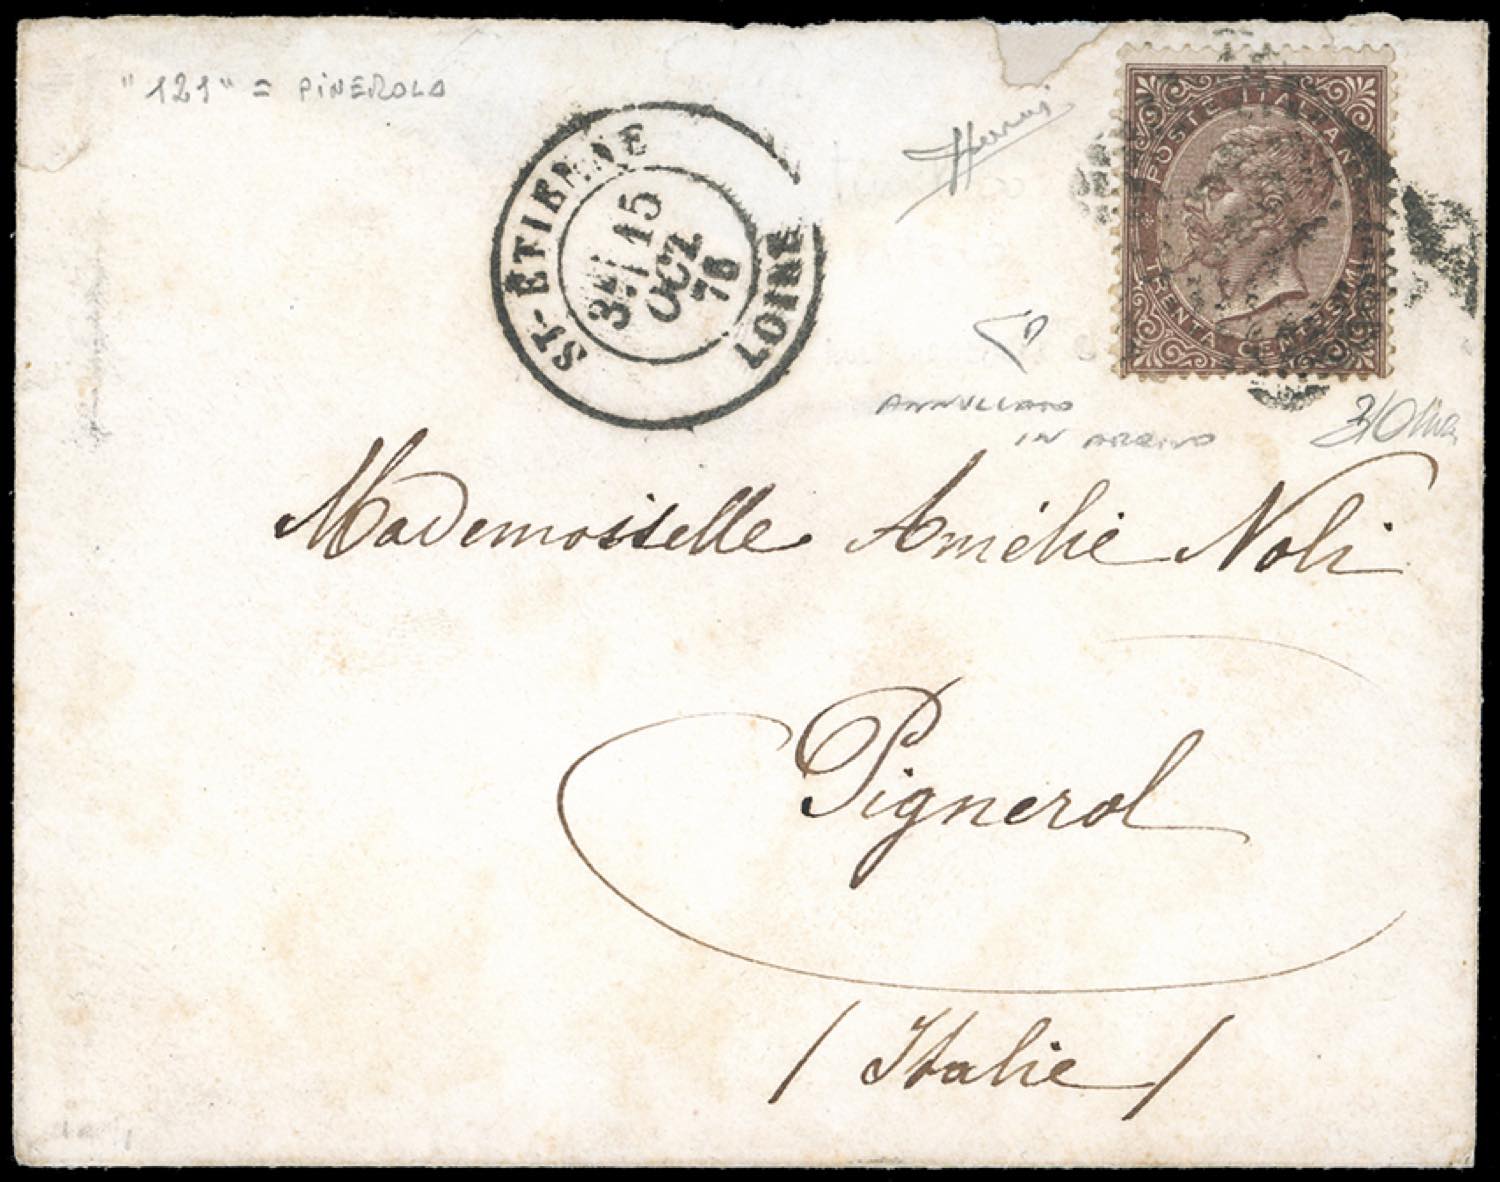 "121" = PINEROLO
ST-ETIENNE
3E/ 15
OCT
76
LOIRE
POSTE ITALIANE
TRENTA CENTESIMI
ANNULLATO
IN ARRIVO
Mademoiselle Amélie Noli
Pignerol
/ Italie /